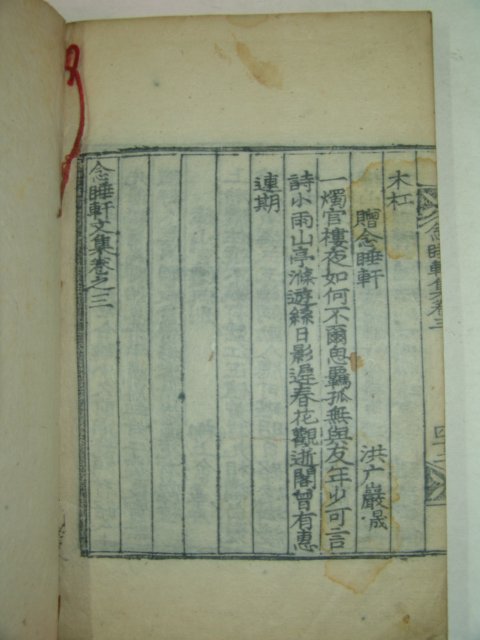 木杠
贈念睡軒 洪广巖晟
一燭官樓夜如何不爾思羈孤無與友年少可言
詩小雨山亭滌遊絲日影遲春花觀逝閣曾有惠
連期
念睡軒文集卷之三